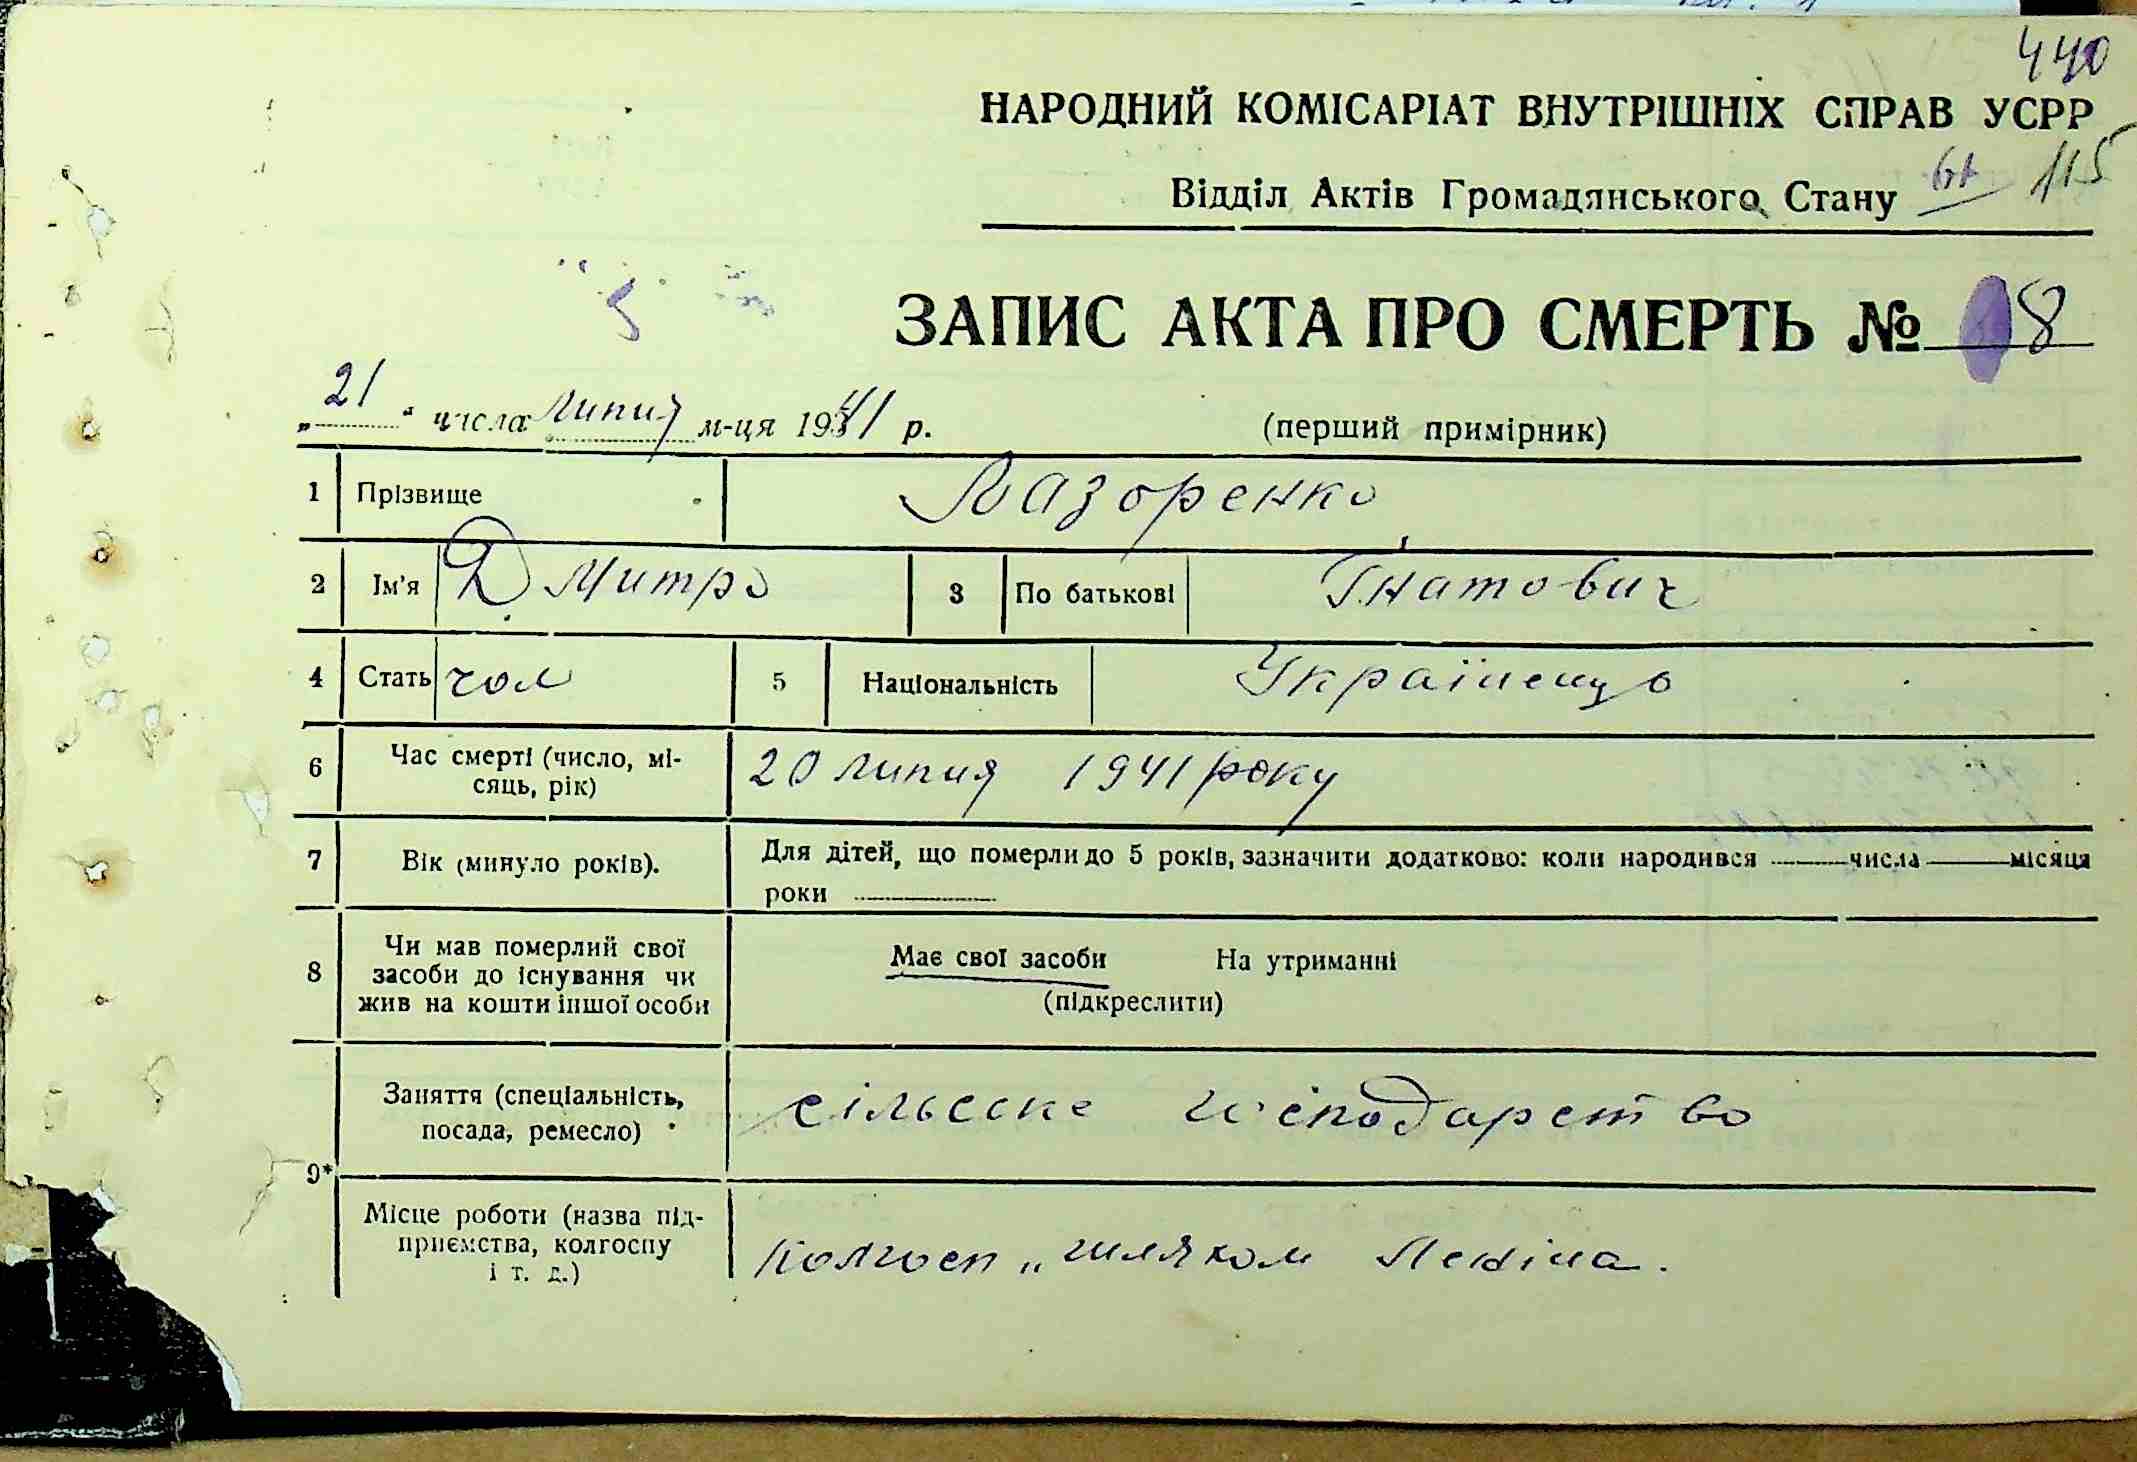 440
НАРОДНИЙ КОМІСАРІАТ ВНУТРІШНІХ СПРАВ УСРР
Відділ Актів Громадянського Стану 115
ЗАПИС АКТА ПРО СМЕРТЬ № 8
„21“ числа липня м-ця 1941 р. (перший примірник)
1 Прізвище Лазоренко
2 Ім'я Дмитро 3 По батькові Гнатович
4 Стать чол 5 Національність Українець
6 Час смерті (число, мі-
сяць, рік) 20 липня 1941 року
7 Вік (минуло років). Для дітей, що померли до 5 років, зазначити додатково: коли народився числа місяця
роки
8 Чи мав померлий свої
засоби до існування чи
жив на кошти іншої особи
Має свої засоби На утриманні
(підкреслити)
9*
Заняття (спеціальність,
посада, ремесло)
сільське господарство
Місце роботи (назва під-
приємства, колгоспу
і т. д.)
Колгосп „шляхом Леніна.